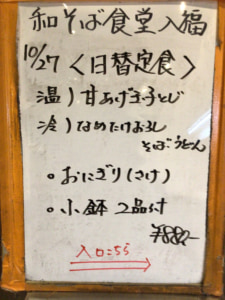 和そば食堂入福
10/27 〈日替定食〉
温）甘あげ玉子とじ
冷）なめたけおろし
そば うどん
○おにぎり（さけ）
○小鉢 2品付
¥880-
入口こちら